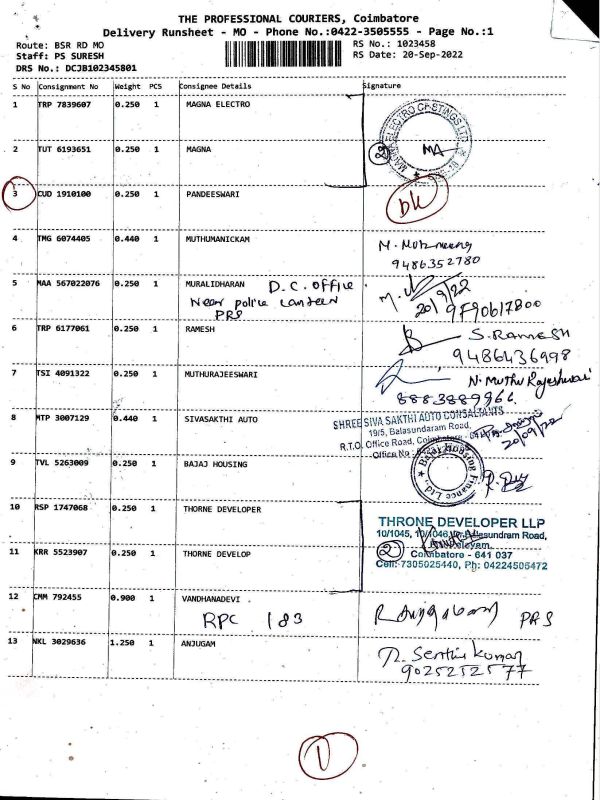 THE PROFESSIONAL COURIERS, Coimbatore
Delivery Runsheet - MO - Phone No.:0422-3505555 - Page No.:1
Route: BSR RD MO RS No.: 1023458
Staff: PS SURESH RS Date: 20-Sep-2022
DRS No.: DCJB102345801
S No Consignment No Weight PCS Consignee Details Signature
1 TRP 7839607 0.250 1 MAGNA ELECTRO
2 TUT 6193651 0.250 1 MAGNA
3 CUD 1910100 0.250 1 PANDEESWARI
4 TMG 6074405 0.440 1 MUTHUMANICKAM
9486352780
5 MAA 567022076 0.250 1 MURALIDHARAN D.C. office
Near police canteen 20/9/22
PRS
6 TRP 6177061 0.250 1 RAMESH S. RAMESH
9486436998
7 TSI 4091322 0.250 1 MUTHURAJEESWARI N. Muthu Rajeshwari
8883889966
8 MTP 3007129 0.440 1 SIVASAKTHI AUTO SHREE SIVA SAKTHI AUTO CONSALTANTS
19/5, Balasundaram Road,
R.T.O. Office Road, Coimbatore
Office No 20/09/22
9 TVL 5263009 0.250 1 BAJAJ HOUSING Bajaj Housing Finance Ltd.,
10 RSP 1747068 0.250 1 THORNE DEVELOPER THRONE DEVELOPER LLP
10/1045, 10/1046 Balasundram Road,
11 KRR 5523907 0.250 1 THORNE DEVELOP 2
Coimbatore - 641 037
Cell: 7305025440, Ph: 04224506472
12 CMM 792455 0.900 1 VANDHANADEVI
RPC 183 PRS
13 NKL 3029636 1.250 1 ANJUGAM R. Senthil kumar
9025252577
1